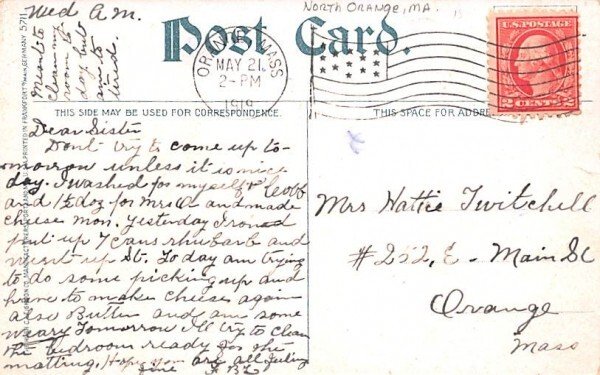 NORTH ORANGE, MA.
Post Card.
U.S. POSTAGE
2 CENTS 2
ORANGE, MASS
MAY 21
2-PM
1919
Wed A.M.
Meant to
clean my
room to
day but
am to
tired.
THIS SIDE MAY BE USED FOR CORRESPONDENCE.
THIS SPACE FOR ADDRE
Dear Sister
Don't try to come up to-
morrow unless it is nice
day. I washed for myself & Cobb
and 1½ doz for Mrs W and made
cheese Mon. Yesterday I roned
put up 7 cans rhubarb and
went up St. To day am trying
to do some picking up and
have to make cheese again
also Butter and am some
weary Tomorrow I'll try to clean
the bedroom ready for the
matting. Hope you are all feeling
fine
Mrs Hattie Twitchell
#252, E- Main St
Orange
Mass